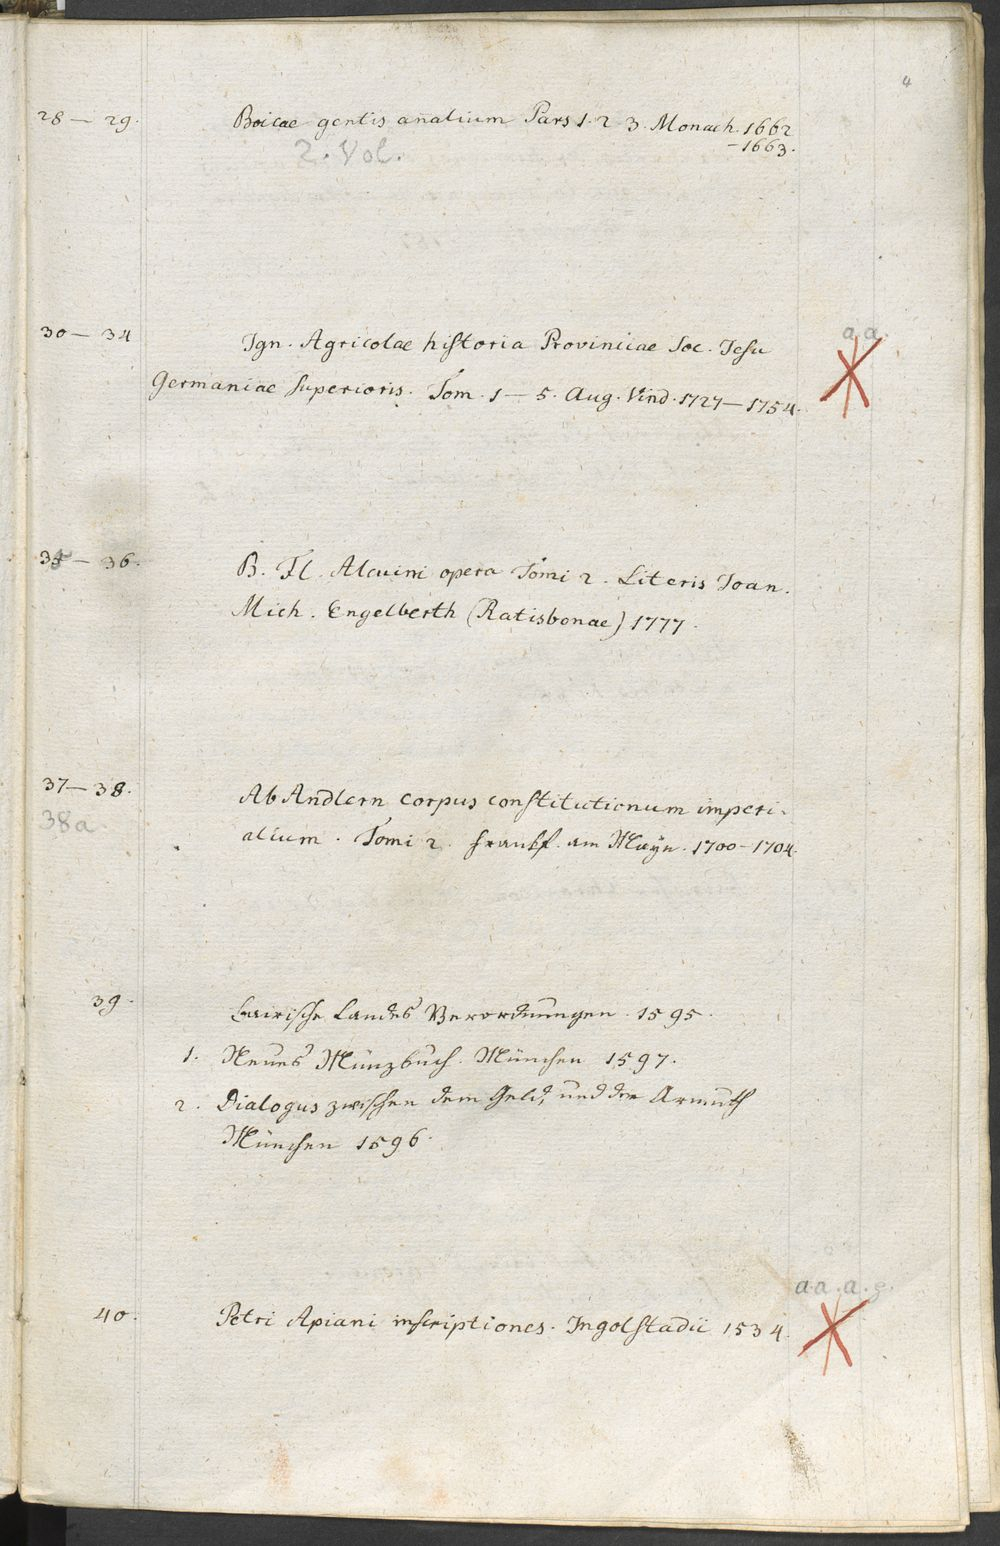 4
28 — 29. Boicae gentis analium Pars 1. 2. 3. Monach. 1662
—1663.
2. Vol.
30 — 34 Ign. Agricolae historia Provinciae Soc. Jesu
a.a.
Germaniae superioris. Tom. 1 — 5. Aug. Vind. 1727 — 1754.
35 — 36. B. Fl. Alcuini opera Tomi 2. Literis Joan.
Mich. Engelberth (Ratisbonae) 1777.
37 — 38. Ab Andlern corpus constitutionum imperi-
38a.
alium. Tomi 2. Frankf. am Mayn. 1700 - 1704.
39. Bairische Landes Verordnungen. 1595.
1. Neues Münzbuch. München 1597.
2. Dialogus zwischen dem Geld, und der Armuth
München 1596.
a.a.a.g.
40. Petri Apiani inscriptiones. Ingolstadii 1534.